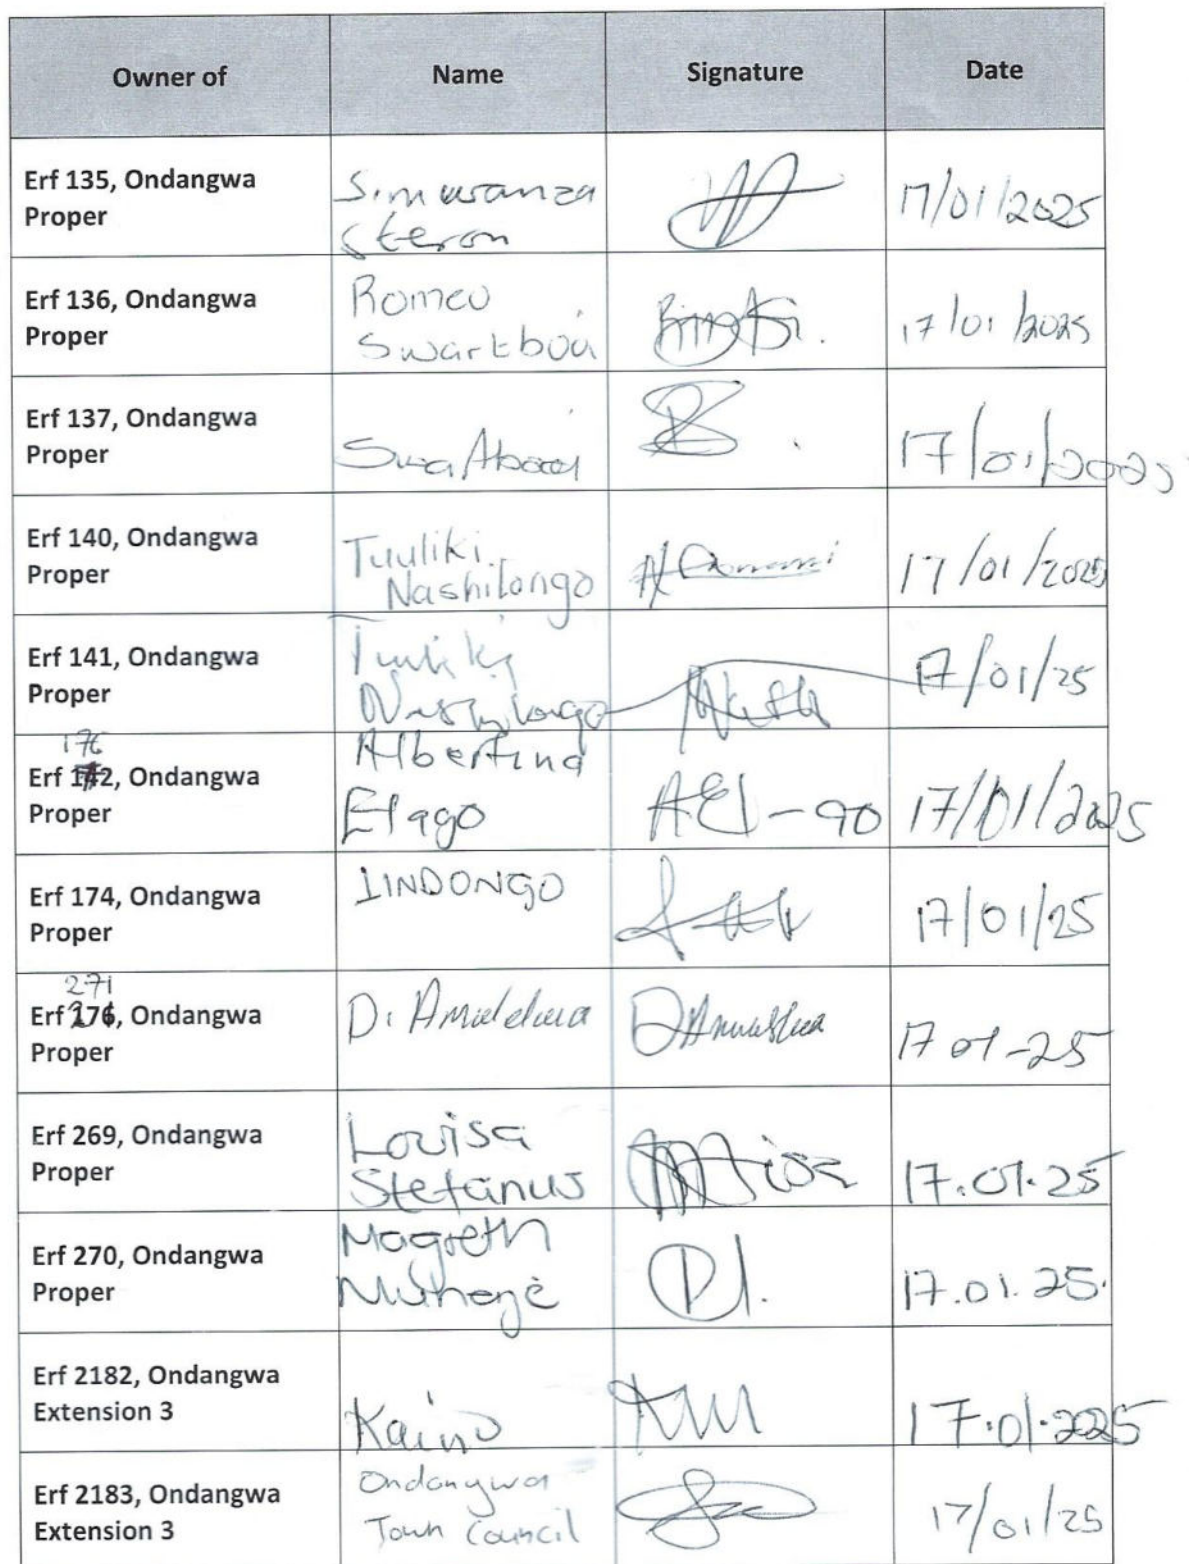 Owner of Name Signature Date
Erf 135, Ondangwa
Proper
Simwanza
Steron
17/01/2025
Erf 136, Ondangwa
Proper
Romeo
Swartbooi
17/01/2025
Erf 137, Ondangwa
Proper
17/01/2025
Erf 140, Ondangwa
Proper
Tuuliki
Nashilongo
17/01/2025
Erf 141, Ondangwa
Proper
Tuuliki
Nashilongo
17/01/25
176
Erf 142, Ondangwa
Proper
Albertina
Elago
AEl-go
17/01/2025
Erf 174, Ondangwa
Proper
IINDONGO
17/01/25
271
Erf 176, Ondangwa
Proper
D.
17 01-25
Erf 269, Ondangwa
Proper
Lovisa
Stefanus
17.01.25
Erf 270, Ondangwa
Proper
Magreth
17.01.25.
Erf 2182, Ondangwa
Extension 3
Kaino
17.01.2025
Erf 2183, Ondangwa
Extension 3
Ondangwa
Town Council
17/01/25